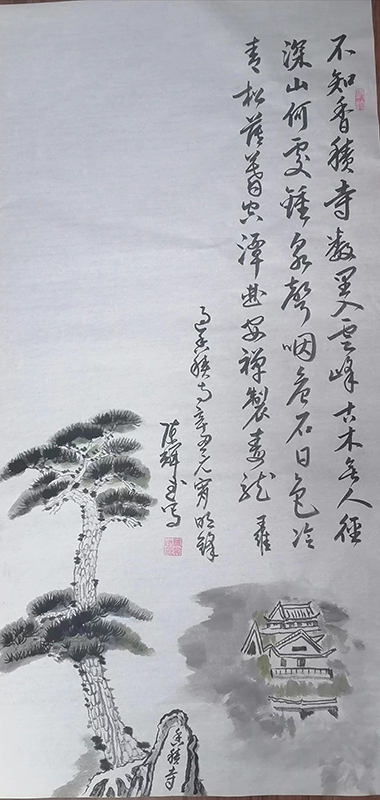 不知香積寺数里入云峰古木无人徑
深山何處鍾泉聲咽危石日色冷
青松薄暮空潭曲安禅製毒龙
过香積寺辛丑元宵明锋
香積寺